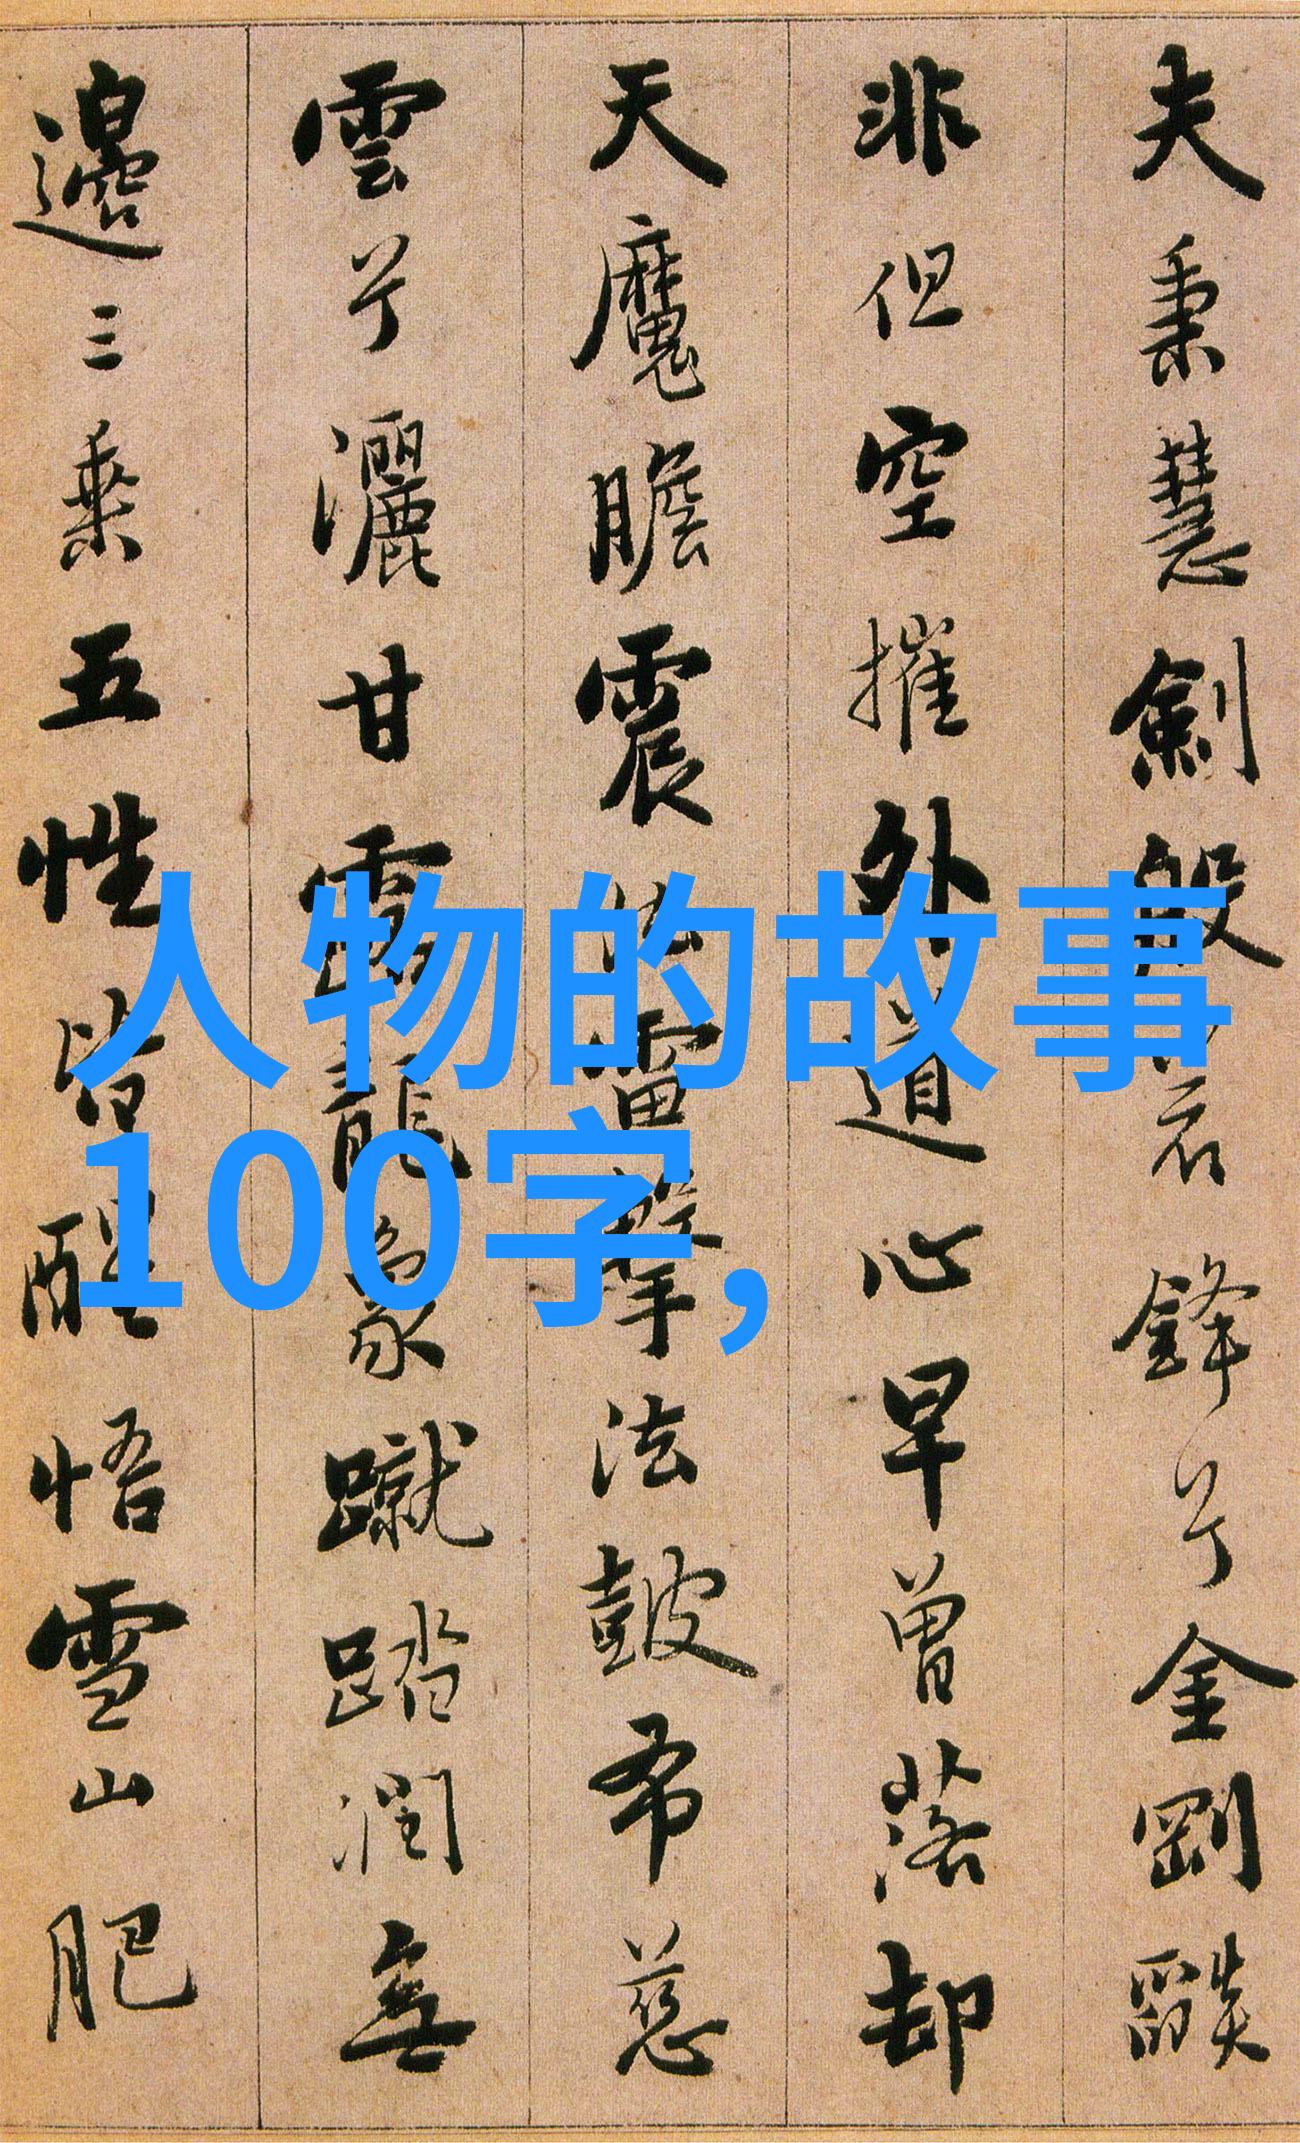 夫秉慧劍般若鋒兮金剛燄
非但空摧外道心早曾落却
天魔膽震法雷擊法皷布慈
雲兮灑甘露龍象蹴踏潤無
邊三乘五性皆醒悟雪山肥
人物的故事
100字,